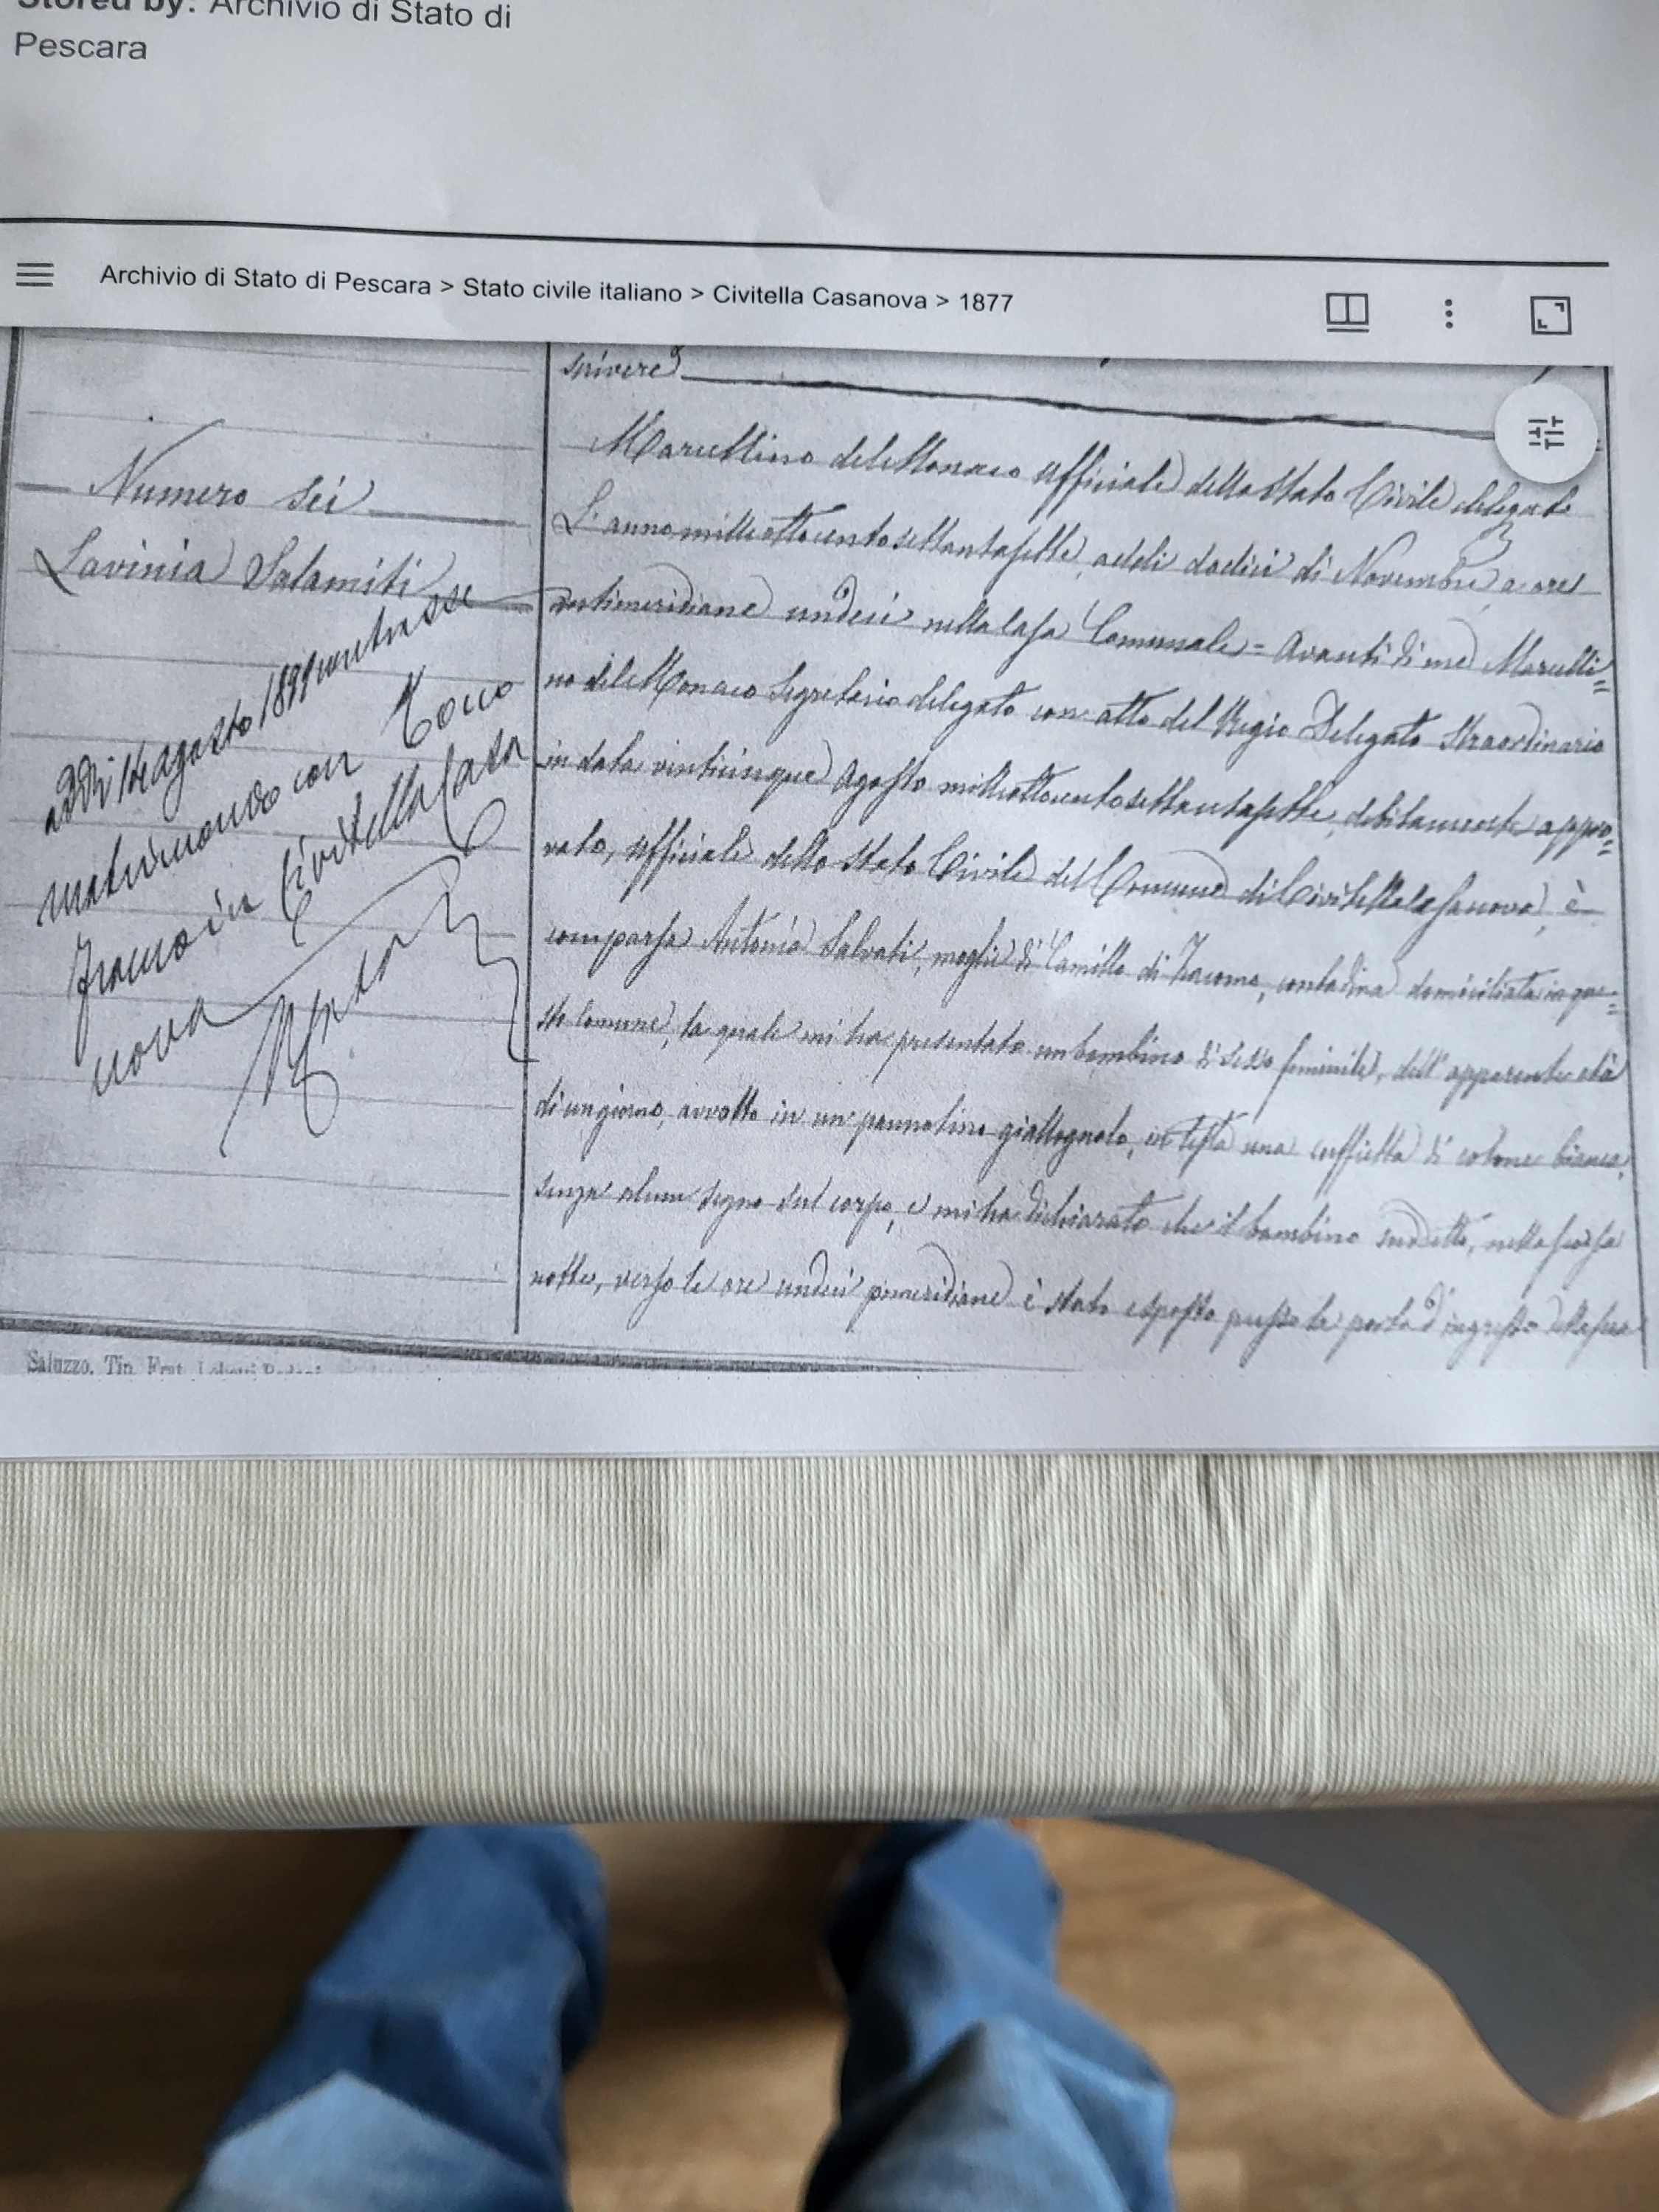 Stored by: Archivio di Stato di
Pescara
Archivio di Stato di Pescara > Stato civile italiano > Civitella Casanova > 1877
scrivere
Numero sei
Lavinia Salamiti
addì 14 agosto 1899 contrasse
matrimonio con Tocco
Franco in Civitella Casa
nova
Marcellino del Monaco Ufficiale dello Stato Civile delegato
L'anno milleottocentosettantasette, addì dodici di Novembre a ore
antimeridiane undici nella Casa Comunale = Avanti di me Marcelli=
no del Monaco Segretario delegato con atto del Regio Delegato Straordinario
in data venticinque Agosto milleottocentosettantasette, debitamente appro=
vato, Ufficiale dello Stato Civile del Comune di Civitella Casanova, è
comparsa Antonia Salvati, moglie di Camillo di Giacomo, contadina domiciliata in que=
sto Comune, la quale mi ha presentato un bambino di sesso feminile, dell'apparente età
di un giorno, avvolto in un pannolino giallognolo, in testa una cuffietta di cotone bianca,
senza alcun segno sul corpo, e mi ha dichiarato che il bambino suddetto, nella scorsa
notte, verso le ore undici pomeridiane è stato esposto presso la porta d'ingresso della sua
Saluzzo, Tip. Frat.